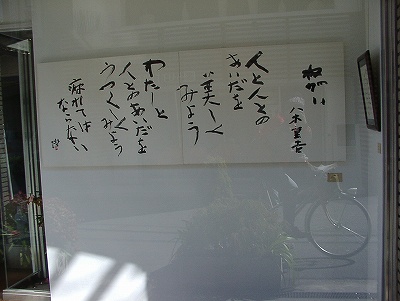 ねがい
八木重吉
人と人との
あいだを
美しく
みよう
わたしと
人とのあいだを
うつくしく
みよう
疲れては
ならない